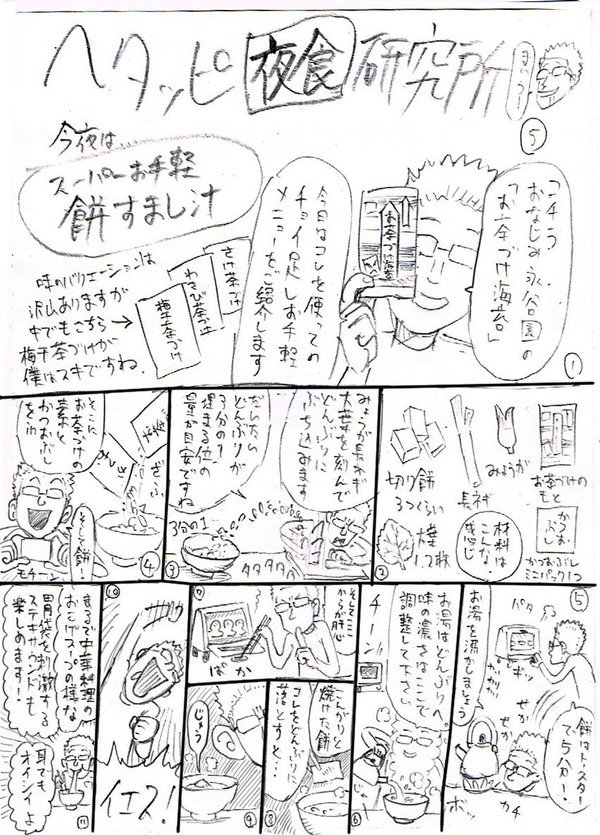 ヘタッピ夜食研究所
まいう〜
⑤
今夜は、
スーパーお手軽
餅すまし汁
コチラ
おなじみ永谷園の
「お茶づけ海苔」
お茶づけ海苔
今日はコレを使っての
チョイ足しお手軽
メニューをご紹介します
さけ茶づけ
わさび茶づけ
梅干茶づけ
味のバリエーションは
沢山ありますが
中でもこちら→
梅干茶づけが
僕はスキですね。
①
お茶づけの
もと
みょうが
長ネギ
切り餅
3つくらい
かつお
ぶし
かつおぶし
ミニパック1つ
材料は
こんな
感じ
大葉
1、2枚
②
みょうが長ネギ
大葉を刻んで
どんぶりに
ぶち込みます
だいたい
どんぶりが
3分の1
埋まる位の
量が目安ですね
3分の1
タタタタタ
③
そこに
お茶づけの
素と
かつおぶし
をin
ざふ
そして餅!
モチーン
④
⑤
餅はトースター
で5分!
パタ
お湯を沸かしましょう
ボッ
せか
せか
カチ
お湯はどんぶりへ
味の濃さはここで
調整して下さい
チーン!
⑥
そしてここ
からが肝心
ぱか
⑦
こんがりと
焼けた餅
コレをどんぶりに
落とすと…
⑧
じゅう
⑨
⑩
イエス!
まるで中華料理の
おこげスープの様な
胃袋を刺激する
ステキサウンドも
楽しめます!
耳でも
オイシイよ
⑪